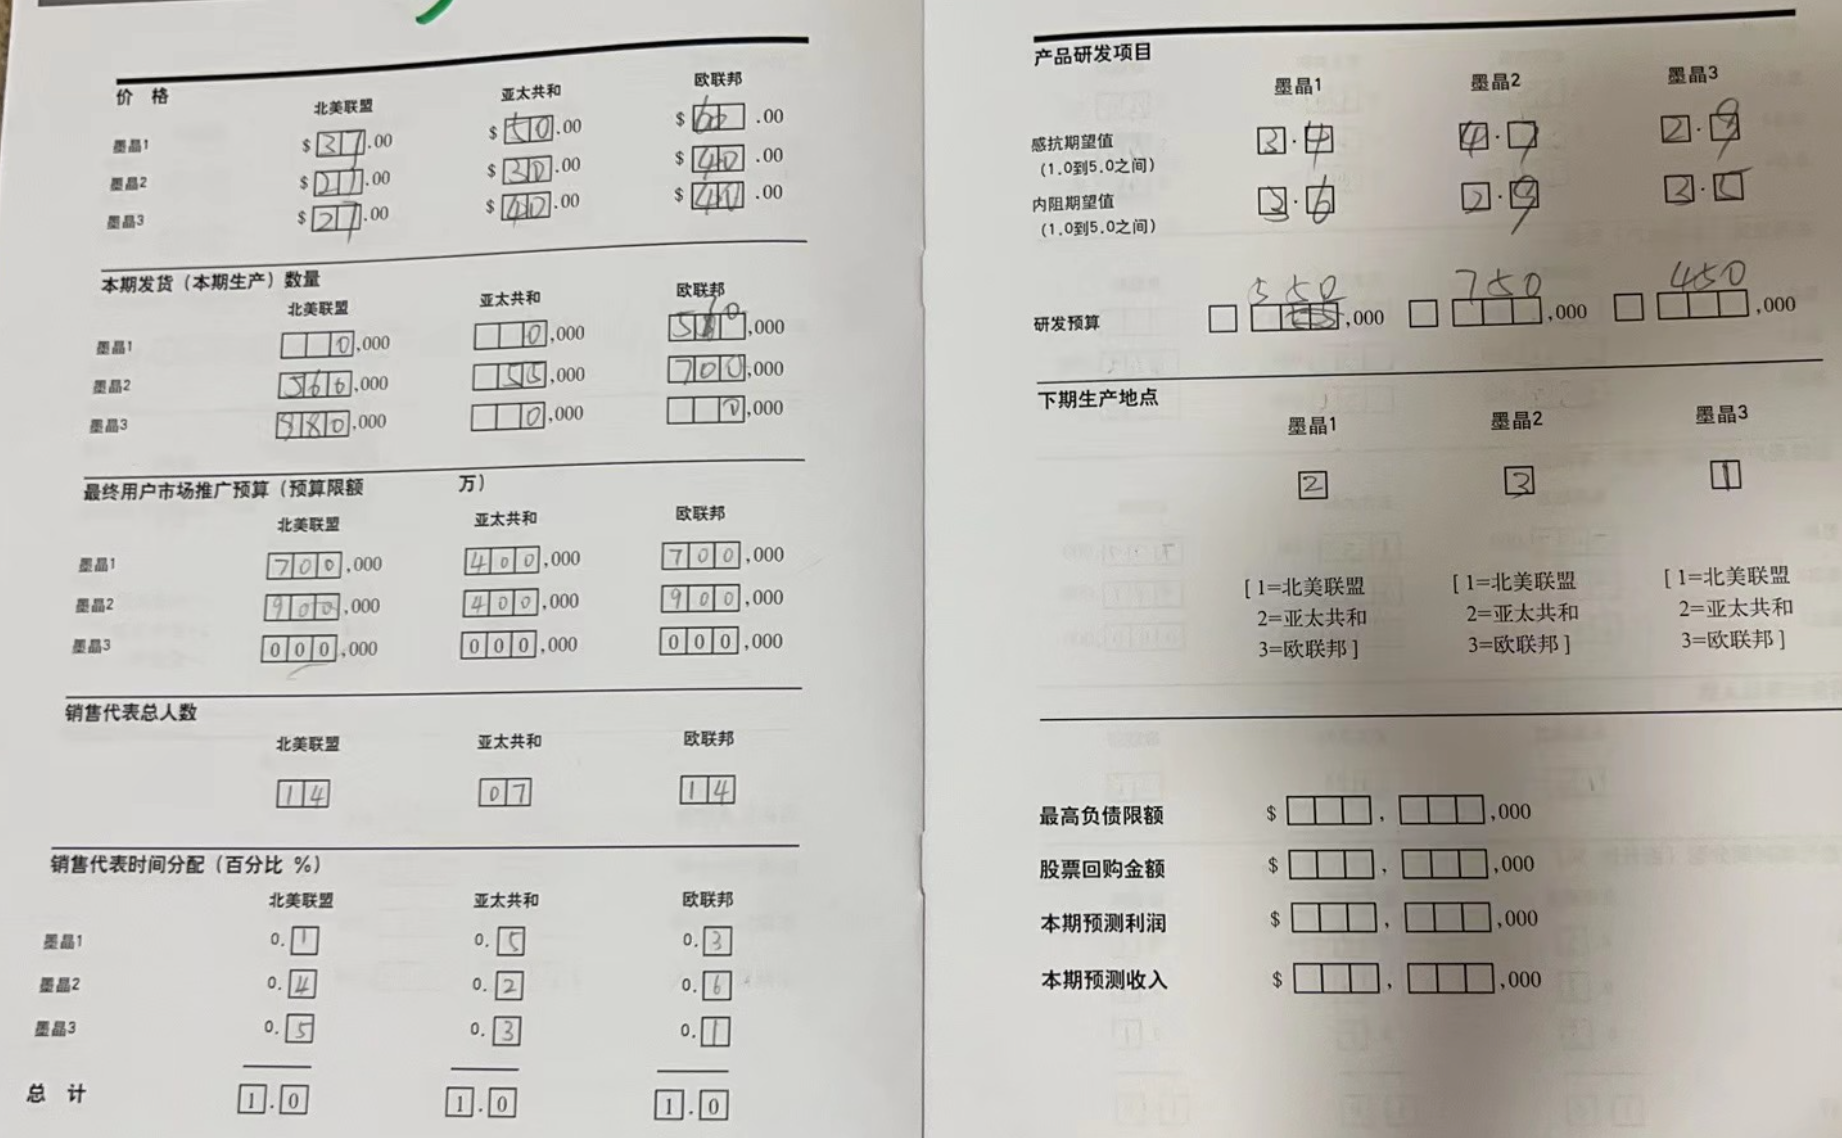 价 格
北美联盟 亚太共和 欧联邦
墨晶1 $37.00 $50.00 $60.00
墨晶2 $27.00 $30.00 $40.00
墨晶3 $27.00 $40.00 $40.00
本期发货（本期生产）数量
北美联盟 亚太共和 欧联邦
墨晶1 0,000 0,000 ,000
墨晶2 560,000 55,000 700,000
墨晶3 880,000 0,000 0,000
最终用户市场推广预算（预算限额 万）
北美联盟 亚太共和 欧联邦
墨晶1 700,000 400,000 700,000
墨晶2 900,000 400,000 900,000
墨晶3 000,000 000,000 000,000
销售代表总人数
北美联盟 亚太共和 欧联邦
14 07 14
销售代表时间分配（百分比 %）
北美联盟 亚太共和 欧联邦
墨晶1 0.1 0.5 0.3
墨晶2 0.4 0.2 0.6
墨晶3 0.5 0.3 0.1
总 计 1.0 1.0 1.0
产品研发项目
墨晶1 墨晶2 墨晶3
感抗期望值 3.4 4.7 2.9
（1.0到5.0之间）
内阻期望值 3.6 2.9 3.5
（1.0到5.0之间）
550 750 450
研发预算 ,000 ,000 ,000
下期生产地点
墨晶1 墨晶2 墨晶3
2 3 1
[ 1=北美联盟 [ 1=北美联盟 [ 1=北美联盟
2=亚太共和 2=亚太共和 2=亚太共和
3=欧联邦 ] 3=欧联邦 ] 3=欧联邦 ]
最高负债限额 $ , ,000
股票回购金额 $ , ,000
本期预测利润 $ , ,000
本期预测收入 $ , ,000